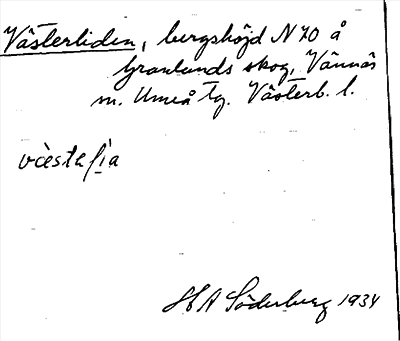 Västerliden, bergshöjd N 70 å
Granlands skog, Vännäs
sn. Umeå tg. Västerb. l.
vàestəlìa
H A Söderberg 1934